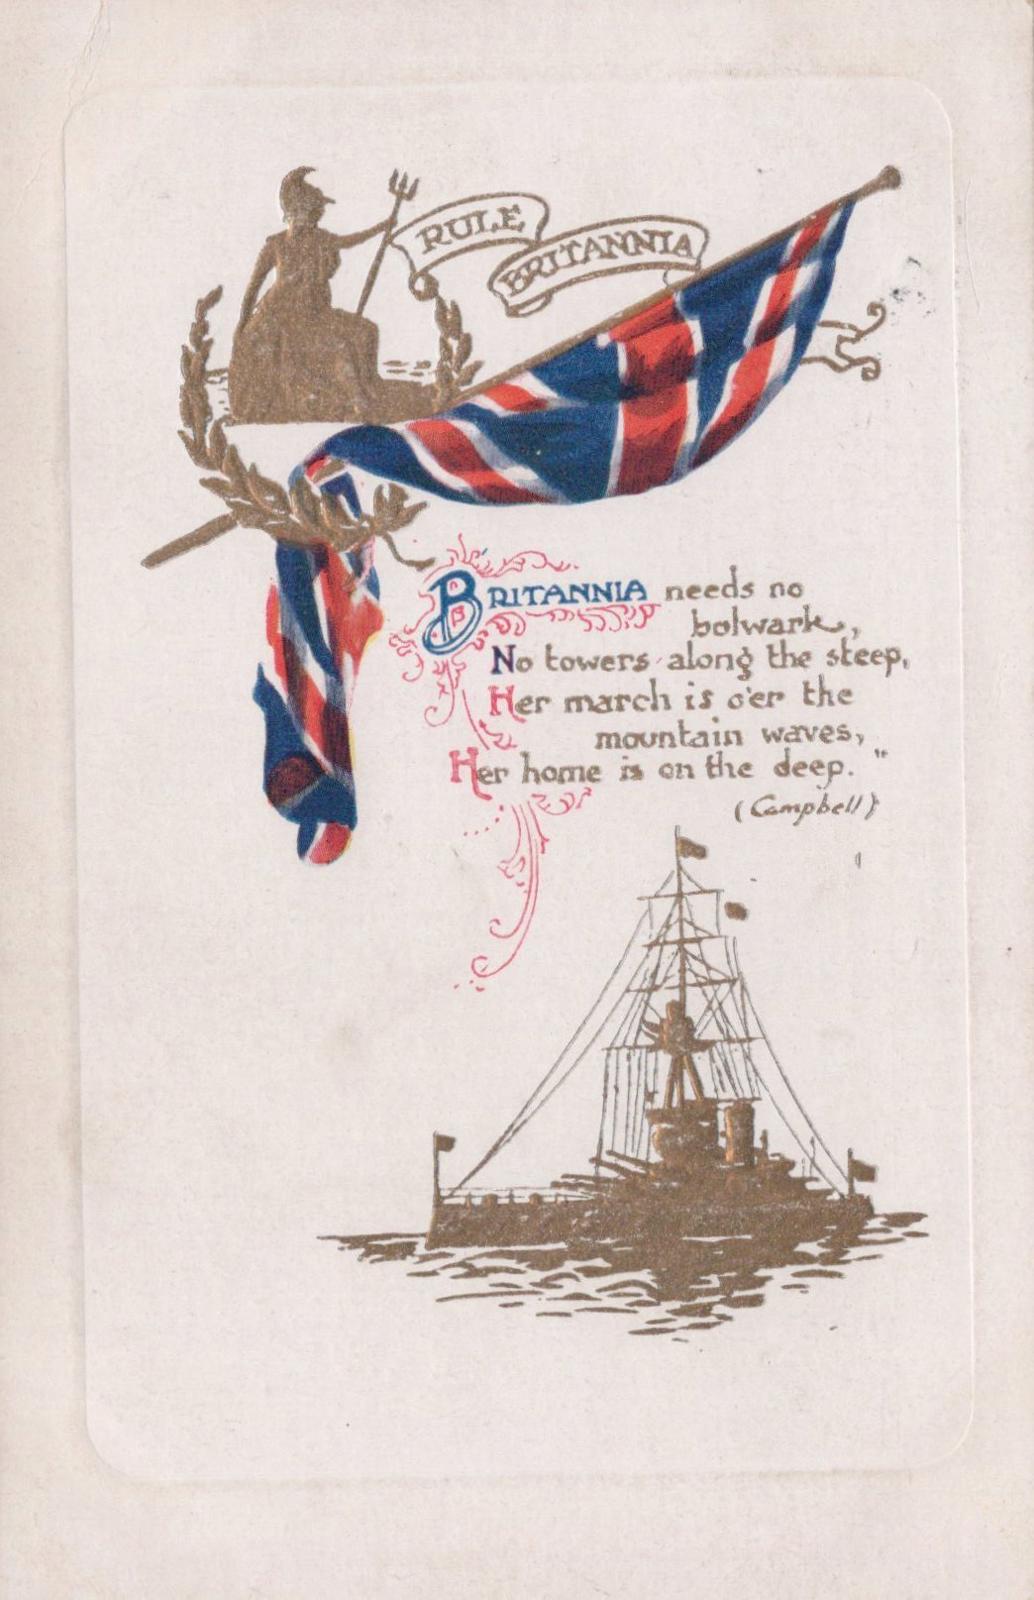 RULE
BRITANNIA
BRITANNIA needs no
bolwark,
No towers along the steep,
Her march is o'er the
mountain waves,
Her home is on the deep."
(Campbell)